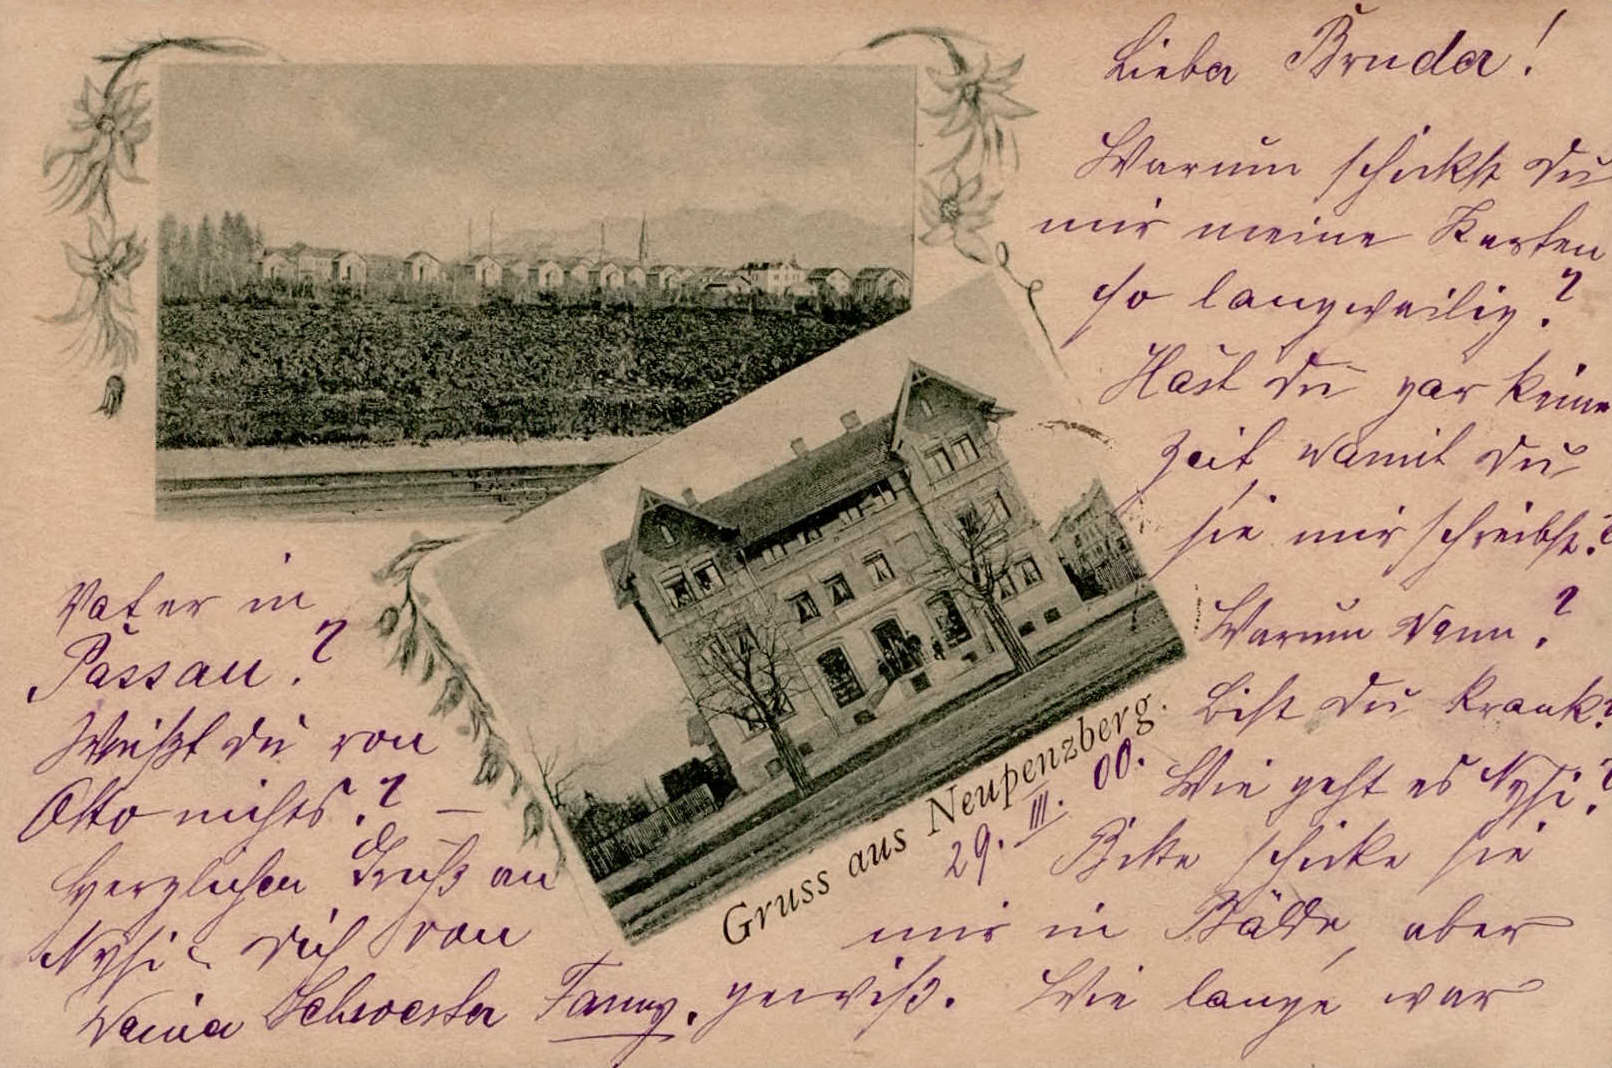 Lieber Bruder!
Warum schickst Du
mir meine Karten
so langweilig?
Hast Du gar keine
Zeit damit Du
sie mir schreibst?
Warum denn?
Bist Du krank?
Wie geht es Nysi?
Bitte schicke sie
mir in Bälde, aber
gewiß. Wie lange war
Vater in
Passau?
Weißt du von
Otto nichts? —
Herzlichen Gruß an
Nysi u. Dich von
Deiner Schwester Fanny.
Gruss aus Neupenzberg.
29. III. 00.